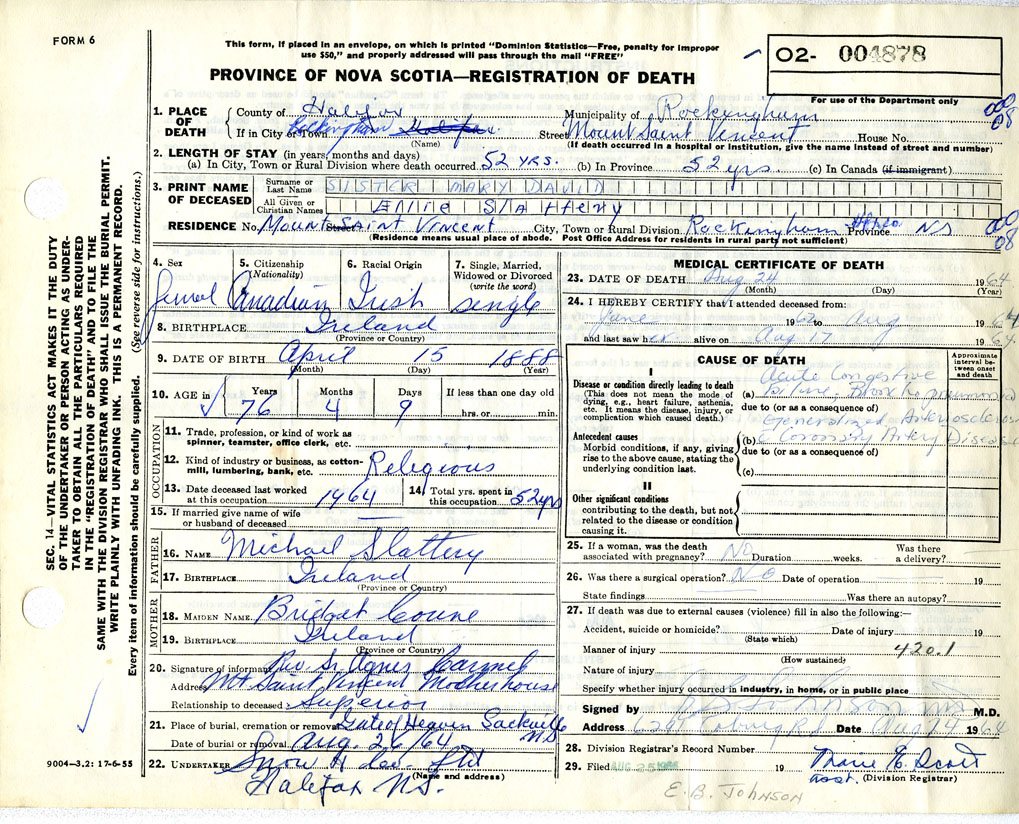 FORM 6
This form, if placed in an envelope, on which is printed "Dominion Statistics—Free, penalty for improper
use $50," and properly addressed will pass through the mail "FREE"
PROVINCE OF NOVA SCOTIA—REGISTRATION OF DEATH
02- 004878
For use of the Department only
SEC. 14—VITAL STATISTICS ACT MAKES IT THE DUTY
OF THE UNDERTAKER OR PERSON ACTING AS UNDER-
TAKER TO OBTAIN ALL THE PARTICULARS REQUIRED
IN THE "REGISTRATION OF DEATH" AND TO FILE THE
SAME WITH THE DIVISION REGISTRAR WHO SHALL ISSUE THE BURIAL PERMIT.
WRITE PLAINLY WITH UNFADING INK. THIS IS A PERMANENT RECORD.
Every item of information should be carefully supplied. (See reverse side for instructions.)
1. PLACE OF DEATH
County of Halifax Municipality of Rockingham
If in City or Town Rockingham Halifax Street Mount Saint Vincent House No.
(Name) (If death occurred in a hospital or institution, give the name instead of street and number)
000
08
2. LENGTH OF STAY (in years, months and days)
(a) In City, Town or Rural Division where death occurred 52 yrs. (b) In Province 52 yrs. (c) In Canada (if immigrant)
3. PRINT NAME OF DECEASED
Surname or Last Name SISTER MARY DAVID
All Given or Christian Names Ellie Slattery
RESIDENCE No. Mount Saint Vincent Street City, Town or Rural Division Rockingham Province N.S
(Residence means usual place of abode. Post Office Address for residents in rural party not sufficient)
000
08
4. Sex
5. Citizenship (Nationality)
6. Racial Origin
7. Single, Married, Widowed or Divorced (write the word)
Femal Canadian Irish single
8. BIRTHPLACE Ireland
(Province or Country)
9. DATE OF BIRTH April 15 1888
(Month) (Day) (Year)
10. AGE in Years Months Days If less than one day old
76 4 9 hrs. or min.
OCCUPATION
11. Trade, profession, or kind of work as
spinner, teamster, office clerk, etc.
12. Kind of industry or business, as cotton-
mill, lumbering, bank, etc. Religious
13. Date deceased last worked at this occupation 1964
14. Total yrs. spent in this occupation 52 yrs
15. If married give name of wife
or husband of deceased
FATHER
16. NAME Michael Slattery
17. BIRTHPLACE Ireland
(Province or Country)
MOTHER
18. MAIDEN NAME Bridget
19. BIRTHPLACE Ireland
(Province or Country)
20. Signature of informant Rev. Sr. Agnes Carmel
Address Mt Saint Vincent Motherhouse
Relationship to deceased Superior
21. Place of burial, cremation or removal Gate of Heaven Sackville
N.S
Date of burial or removal Aug. 26/64
22. UNDERTAKER Snow & Ltd
Halifax N.S.
(Name and address)
9004—3.2: 17-6-55
MEDICAL CERTIFICATE OF DEATH
23. DATE OF DEATH Aug 24 1964
(Month) (Day) (Year)
24. I HEREBY CERTIFY that I attended deceased from:
June 1962 to Aug 1964
and last saw her alive on Aug 17 1964
CAUSE OF DEATH
Approximate interval between onset and death
I
Disease or condition directly leading to death
(This does not mean the mode of
dying, e.g., heart failure, asthenia,
etc. It means the disease, injury, or
complication which caused death.)
(a) Acute Congestive
Failure, Bronchopneumonia
due to (or as a consequence of)
Generalized Arteriosclerosis
Antecedent causes
Morbid conditions, if any, giving
rise to the above cause, stating the
underlying condition last.
(b) Coronary Artery Disease
due to (or as a consequence of)
(c)
II
Other significant conditions
contributing to the death, but not
related to the disease or condition
causing it.
25. If a woman, was the death associated with pregnancy? NO Duration weeks. Was there a delivery?
26. Was there a surgical operation? NO Date of operation 19
State findings Was there an autopsy?
27. If death was due to external causes (violence) fill in also the following:—
Accident, suicide or homicide? Date of injury 19
(State which)
Manner of injury 420.1
(How sustained)
Nature of injury
Specify whether injury occurred in industry, in home, or in public place
Signed by Johnson M.D.
Address Coburg Rd Date Aug 24 1964
28. Division Registrar's Record Number
29. Filed AUG 25 19 Marie E. Scott
asst. (Division Registrar)
E. B. JOHNSON